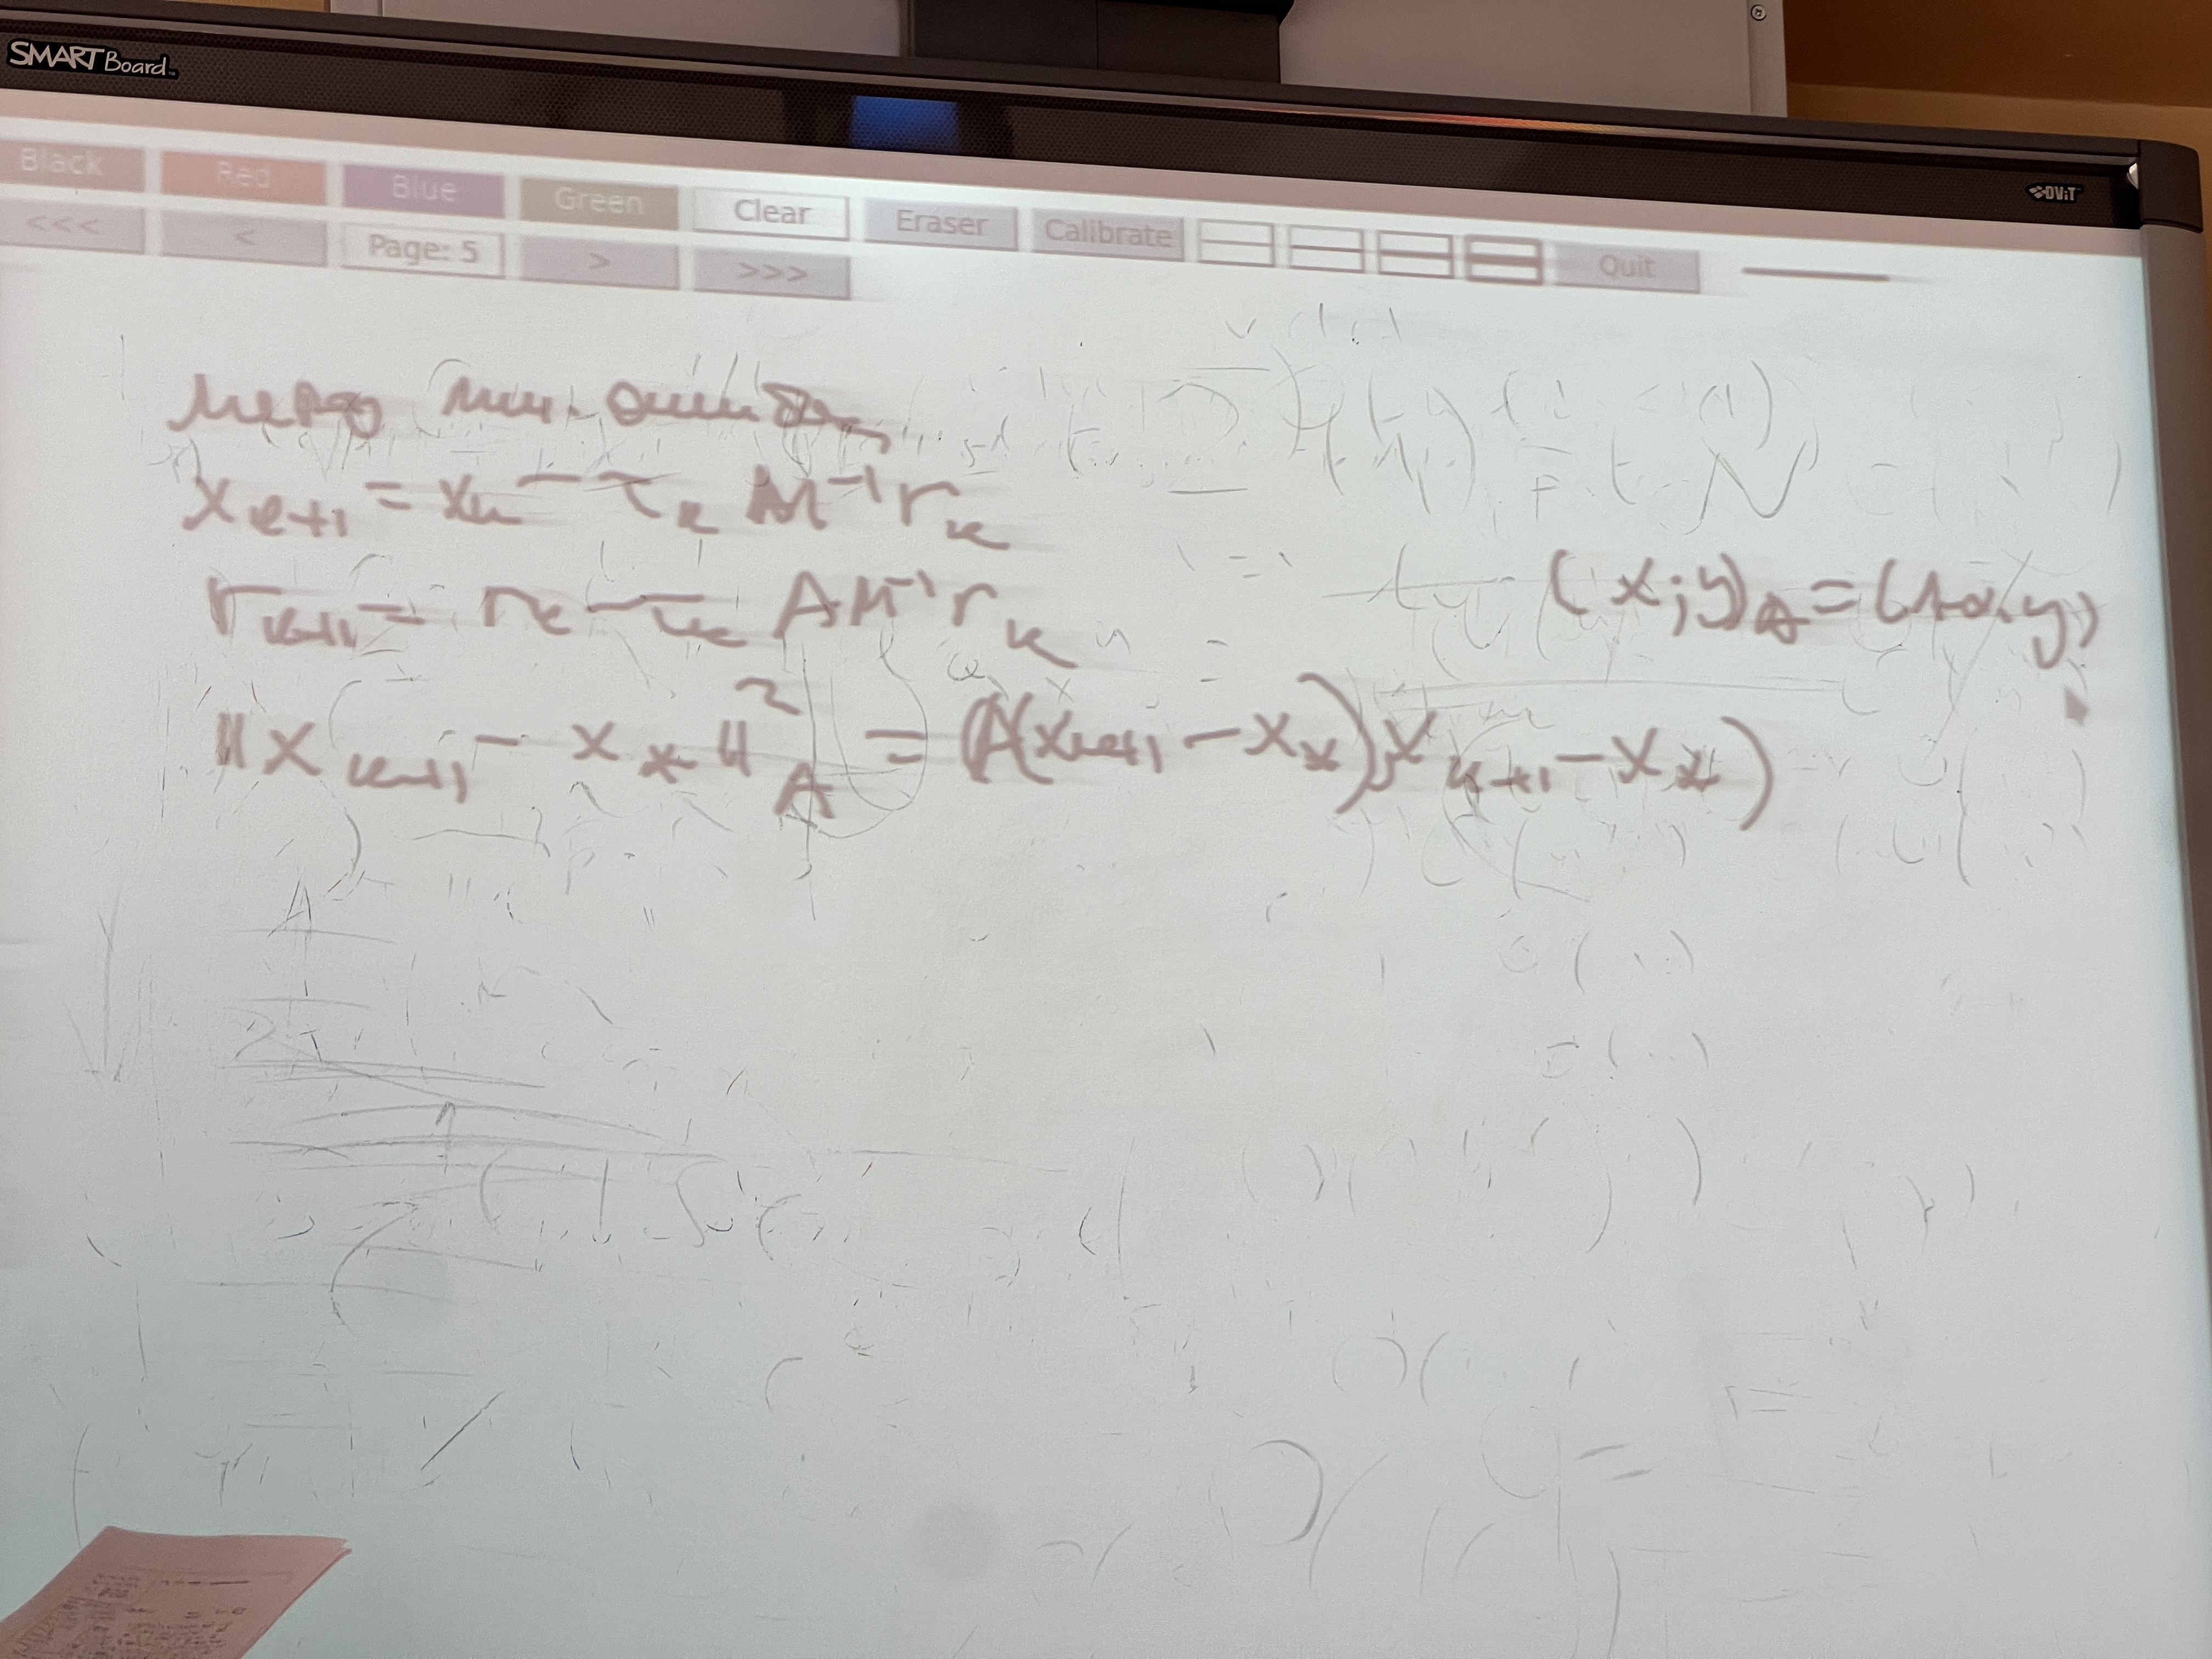 SMART Board
DViT
Black Red Blue Green Clear Eraser Calibrate Quit
<<< < Page: 5 > >>>
Метод мин. ошибок
x_{k+1} = x_k - τ_k M^{-1} r_k
r_{k+1} = r_k - τ_k A M^{-1} r_k
(x; y)_A = (Ax, y)
||x_{k+1} - x_*||^2_A = (A(x_{k+1} - x_*), x_{k+1} - x_*)